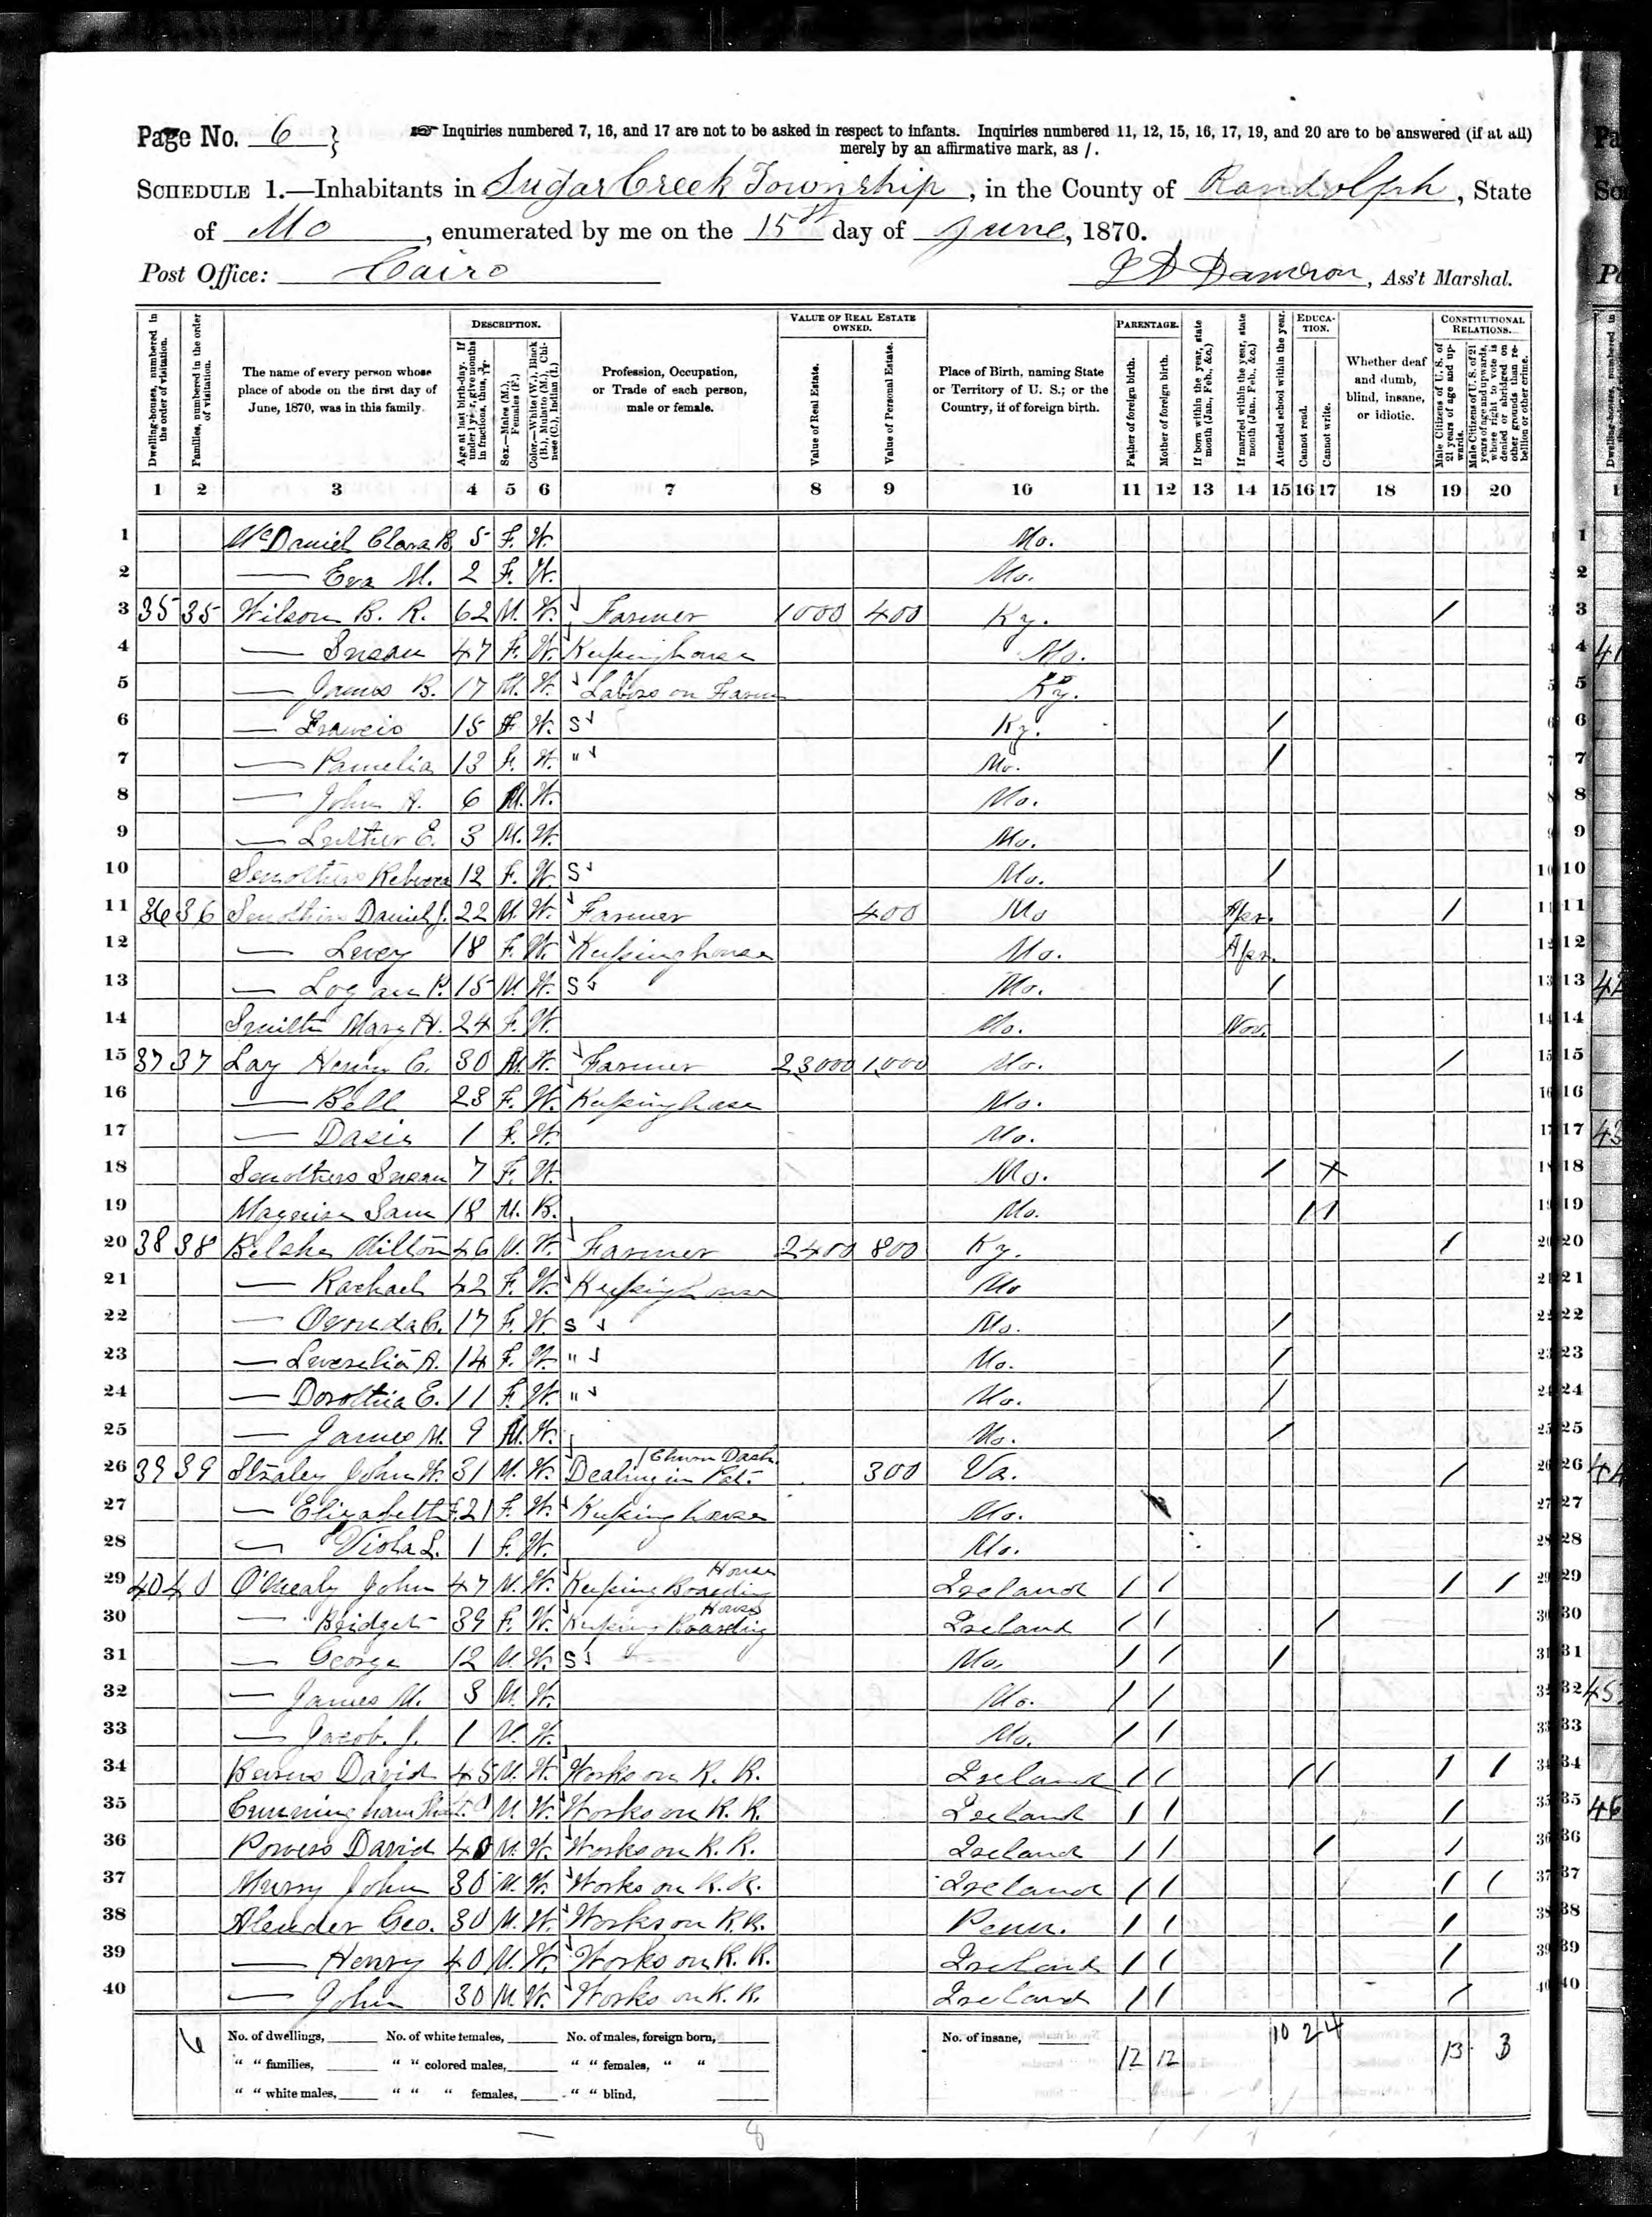 Page No. 6 } ☞ Inquiries numbered 7, 16, and 17 are not to be asked in respect to infants. Inquiries numbered 11, 12, 15, 16, 17, 19, and 20 are to be answered (if at all)
merely by an affirmative mark, as /.
SCHEDULE 1.—Inhabitants in Sugar Creek Township, in the County of Randolph, State
of Mo, enumerated by me on the 15th day of June, 1870.
Post Office: Cairo
Dameron, Ass't Marshal.
DESCRIPTION. VALUE OF REAL ESTATE OWNED. PARENTAGE. EDUCATION. CONSTITUTIONAL RELATIONS.
Dwelling-houses, numbered in the order of visitation.
Families, numbered in the order of visitation.
The name of every person whose place of abode on the first day of June, 1870, was in this family.
Age at last birth-day. If under 1 year, give months in fractions, thus, 3/12.
Sex.—Males (M.), Females (F.)
Color.—White (W.), Black (B.), Mulatto (M.), Chinese (C.), Indian (I.)
Profession, Occupation, or Trade of each person, male or female.
Value of Real Estate.
Value of Personal Estate.
Place of Birth, naming State or Territory of U. S.; or the Country, if of foreign birth.
Father of foreign birth.
Mother of foreign birth.
If born within the year, state month (Jan., Feb., &c.)
If married within the year, state month (Jan., Feb., &c.)
Attended school within the year.
Cannot read.
Cannot write.
Whether deaf and dumb, blind, insane, or idiotic.
Male Citizens of U. S. of 21 years of age and upwards.
Male Citizens of U. S. of 21 years of age and upwards, whose right to vote is denied or abridged on other grounds than rebellion or other crime.
1 2 3 4 5 6 7 8 9 10 11 12 13 14 15 16 17 18 19 20
1 McDaniel Clara B. 5 F. W. Mo.
2 — Eva M. 2 F. W. Mo.
3 35 35 Wilson B. R. 62 M. W. Farmer 1000 400 Ky. /
4 — Susan 47 F. W. Keeping house Mo.
5 — James B. 17 M. W. Labors on Farm Ky.
6 — Francis 15 F W. S Ky. /
7 — Pamelia 13 F. W. " Mo. /
8 — John A. 6 M. W. Mo.
9 — Luther E. 3 M. W. Mo.
10 Smothers Rebecca 12 F. W. S Mo. /
11 36 36 Smothers Daniel J. 22 M. W. Farmer 400 Mo Apr. /
12 — Lucy 18 F. W. Keeping house Mo. Apr.
13 — Logan P. 15 M. W. S Mo. /
14 Smith Mary H. 24 F. W. Mo. Nov.
15 37 37 Lay Henry C. 30 M. W. Farmer 23,000 1,000 Mo. /
16 — Bell 28 F. W. Keeping house Mo.
17 — Dasie 1 F. W. Mo.
18 Smothers Susan 7 F. W. Mo. / X
19 Sam 18 M. B. Mo. / /
20 38 38 Belsher Milton 46 M. W. Farmer 2400 800 Ky. /
21 — Rachael 42 F. W. Keeping house Mo
22 — 17 F. W. S Mo. /
23 — A. 14 F. W. " Mo. /
24 — Dorothia E. 11 F W. " Mo. /
25 — James M. 9 M. W. Mo. /
26 39 39 Staley John W. 31 M. W. Dealing in Pat. Churn Dash. 300 Va. /
27 — Elizabeth F. 21 F. W. Keeping house Mo.
28 — Viola L. 1 F. W. Mo.
29 40 40 O'Nealy John 47 M. W. Keeping Boarding House Ireland / / / /
30 — Bridget 39 F. W. Keeping Boarding House Ireland / / /
31 — George 12 M. W. S Mo. / / /
32 — James M. 3 M. W. Mo. / /
33 — Jacob J. 1 M. W. Mo. / /
34 David 45 M. W. Works on R. R. Ireland / / / / / /
35 Cunningham M. W. Works on R. R. Ireland / / /
36 Powers David 40 M. W. Works on R. R. Ireland / / / /
37 Murry John 30 M. W. Works on R. R. Ireland / / / /
38 Alender Geo. 30 M. W. Works on R. R. Penn. / / /
39 — Henry 40 M. W. Works on R. R. Ireland / / /
40 — John 30 M. W. Works on R. R. Ireland / / /
6 No. of dwellings, No. of white females, No. of males, foreign born, No. of insane, 12 12 10 2 4 13 3
" " families, " " colored males, " " females, " "
" " white males, " " " females, " " blind,
8